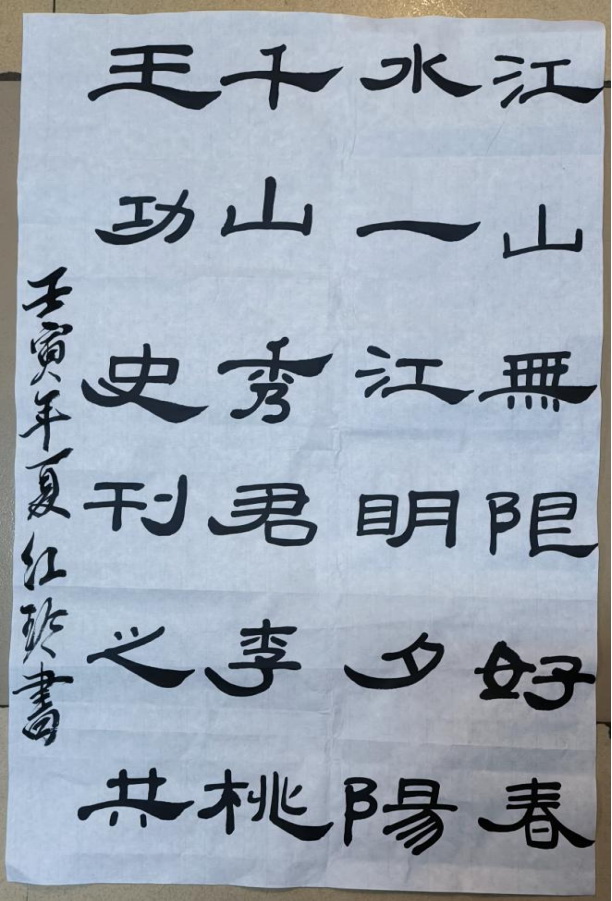 江山無限好春
水一江明夕陽
千山秀君李桃
王功史刊之共
壬寅年夏红玲書